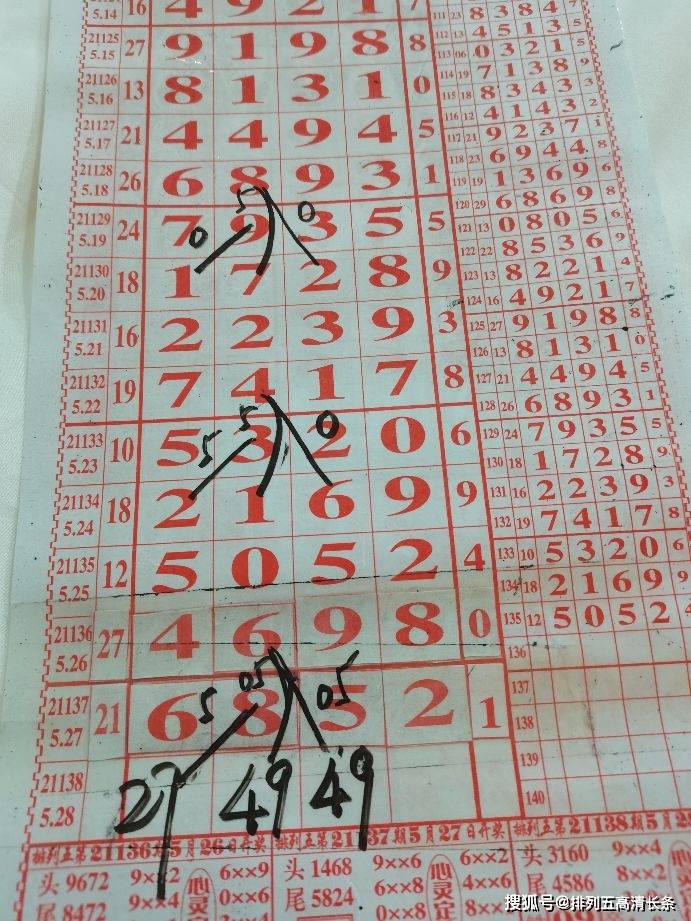 5.14 16 4 9 2 1 7
21125 5.15 27 9 1 9 8 8
21126 5.16 13 8 1 3 1 0
21127 5.17 21 4 4 9 4 5
21128 5.18 26 6 8 9 3 1
5 0
21129 5.19 24 7 9 3 5 5
0
21130 5.20 18 1 7 2 8 9
21131 5.21 16 2 2 3 9 3
21132 5.22 19 7 4 1 7 8
5 0
21133 5.23 10 5 3 2 0 6
5
21134 5.24 18 2 1 6 9 9
21135 5.25 12 5 0 5 2 4
21136 5.26 27 4 6 9 8 0
05 05
21137 5.27 21 6 8 5 2 1
5
21138 5.28 27 49 49
111 23 8 3 8 4 7
112 13 4 5 1 3 5
113 06 0 3 2 1 5
114 19 7 1 3 8 9
115 18 8 3 4 3 3
116 12 4 1 4 3 2
117 21 9 2 3 7 1
118 23 6 9 4 4 8
119 19 1 3 6 9 6
120 29 6 8 6 9 8
121 13 0 8 0 5 6
122 22 8 5 3 6 9
123 13 8 2 2 1 4
124 16 4 9 2 1 7
125 27 9 1 9 8 8
126 13 8 1 3 1 0
127 21 4 4 9 4 5
128 26 6 8 9 3 1
129 24 7 9 3 5 5
130 18 1 7 2 8 9
131 16 2 2 3 9 3
132 19 7 4 1 7 8
133 10 5 3 2 0 6
134 18 2 1 6 9 9
135 12 5 0 5 2 4
136
137
138
139
140
排列五第21136期5月26日开奖
头9672 9××2 6××9
尾8472 9××4 0××6
心灵
排列五第21137期5月27日开奖
头1468 9××6 6××2
尾5824 6××8 4××6
心灵
排列五第21138期5月28
头3160 9××4
尾4586 8××2
搜狐号@排列五高清长条